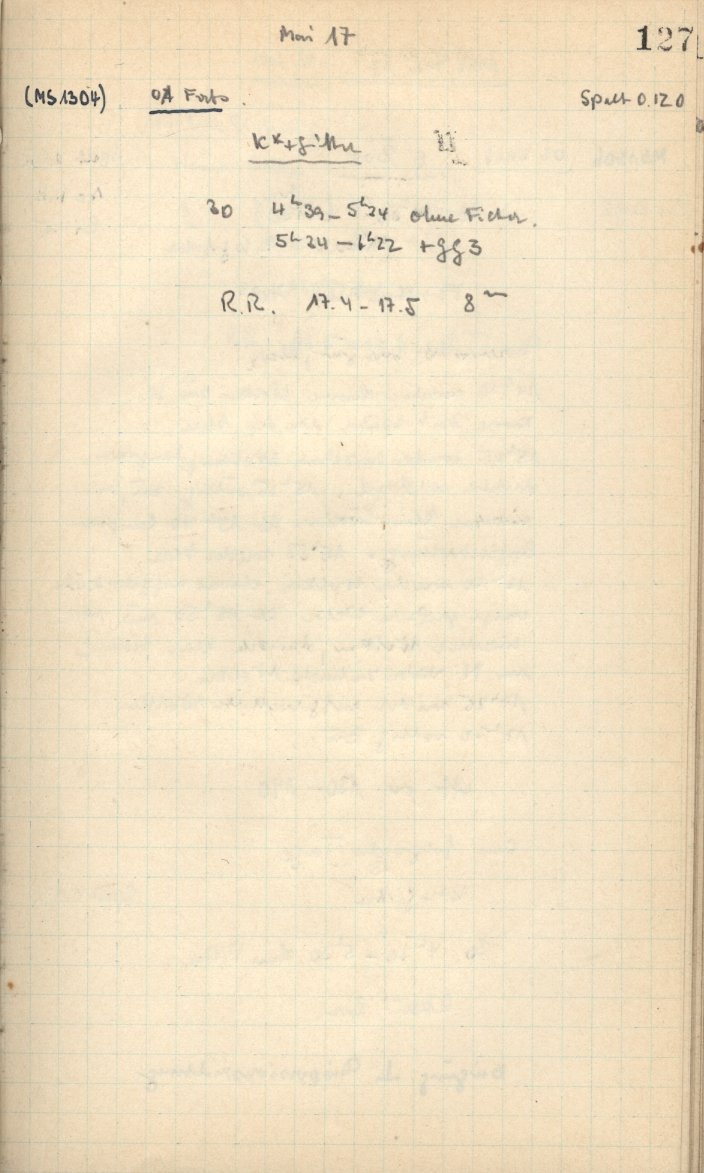 Mai 17 127
(MS1304) OA Spalt 0.120
K*+Gitter II
30 4h39 – 5h24 ohne Filter.
5h24 – 6h22 + gg3
R.R. 17.4 – 17.5 8m